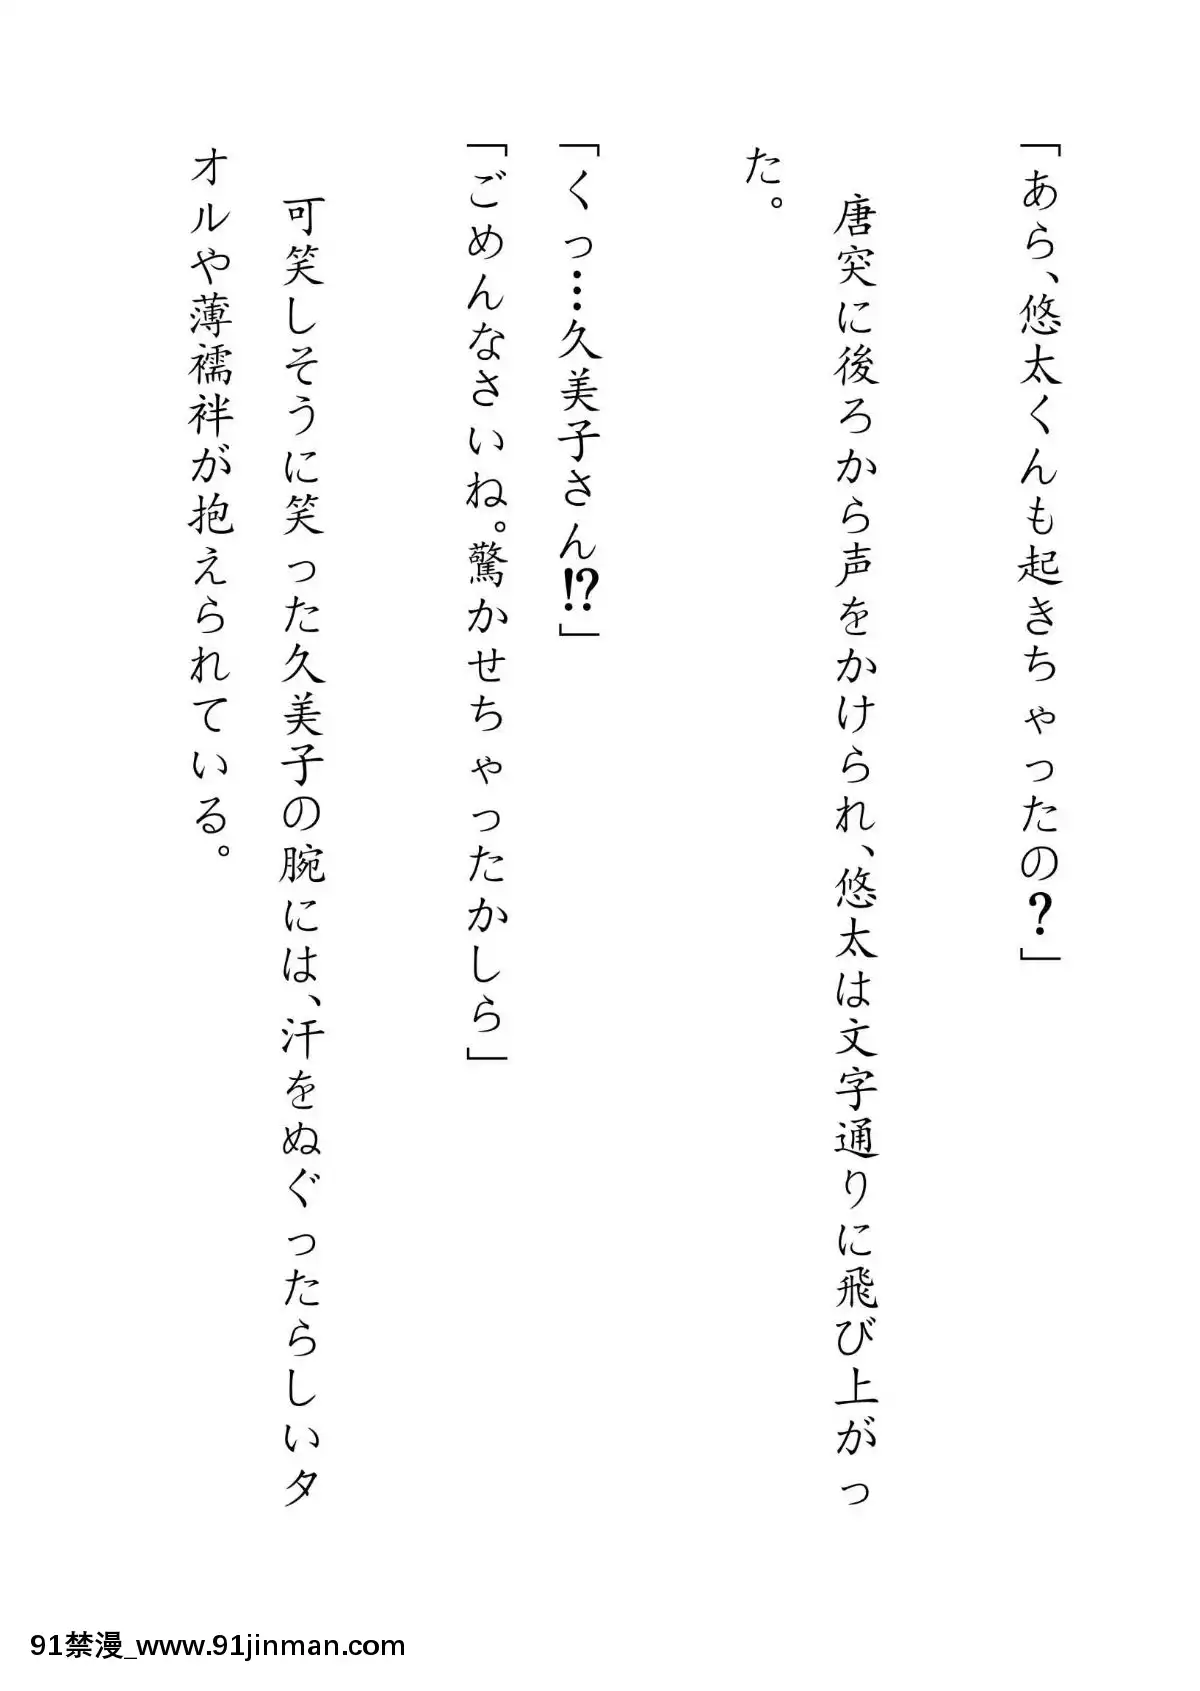 「あら、悠太くんも起きちゃったの？」
唐突に後ろから声をかけられ、悠太は文字通りに飛び上がっ
た。
「くっ…久美子さん⁉」
「ごめんなさいね。驚かせちゃったかしら」
可笑しそうに笑った久美子の腕には、汗をぬぐったらしいタ
オルや薄襦袢が抱えられている。
91禁漫_www.91jinman.com